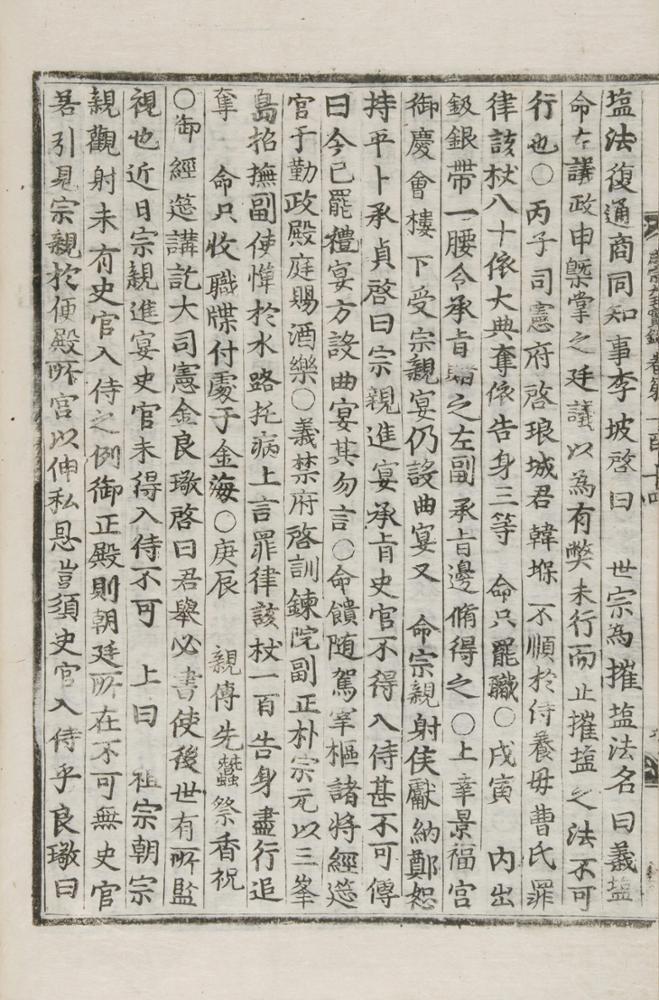 塩法復通商同知事李坡啓曰 世宗為搉塩法名曰義塩
命左議政申槩掌之廷議以為有弊未行而止搉塩之法不可
行也○丙子司憲府啓琅城君韓堢不順於侍養母曹氏罪
律該杖八十依大典奪依告身三等 命只罷職○戊寅 內出
鈒銀帶一腰令承旨賭之左副承旨邊脩得之○上幸景福宮
御慶會樓下受宗親宴仍設曲宴又 命宗親射侯獻納鄭恕
持平卜承貞啓曰宗親進宴承旨史官不得入侍甚不可傳
曰今已罷禮宴方設曲宴其勿言○命饋随駕宰樞諸將經筵
官于勤政殿庭賜酒樂○義禁府啓訓鍊院副正朴宗元以三峯
島招撫副使憚於水路托病上言罪律該杖一百告身盡行追
奪 命只收職牒付處于金海○庚辰 親傳先蠶祭香祝
○御經筵講訖大司憲金良璥啓曰君舉必書使後世有所監
視也近日宗親進宴史官未得入侍不可 上曰 祖宗朝宗
親觀射未有史官入侍之例御正殿則朝廷所在不可無史官
若引見宗親於便殿所宮以伸私恩豈須史官入侍乎良璥曰